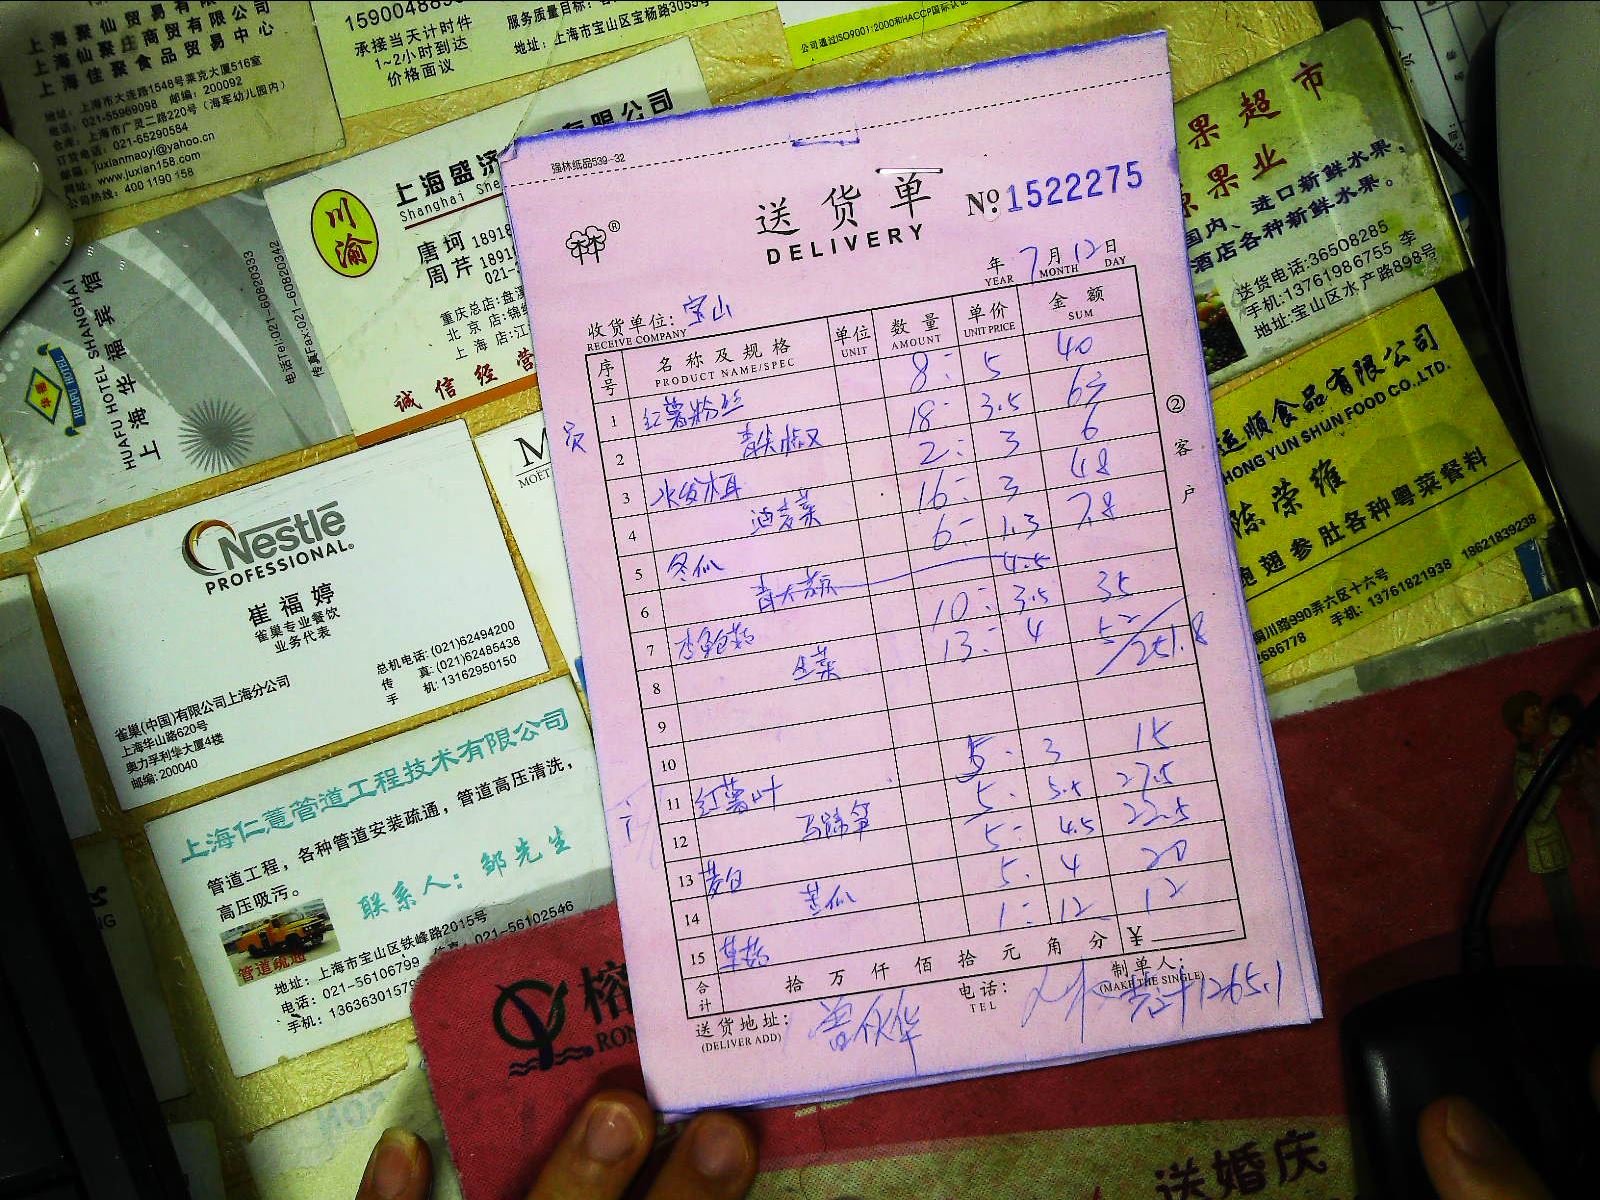 上海聚仙贸易有限公司
上海仙聚庄商贸有限公司
上海佳聚食品贸易中心
地址：上海市大连路1548号莱克大厦516室
电话：021-55969098 邮编：200092
仓库：上海市广灵二路220号（海军幼儿园内）
订货电话：021-65290584
邮箱：juxianmaoyi@yahoo.cn
网址：www.juxian158.com
公司热线：400 1190 158
承接当天计时件
1~2小时到达
价格面议
服务质量目标：
地址：上海市宝山区宝杨路3055号
公司通过ISO9001:2000和HACCP国际认证
川渝
上海盛济
有限公司
Shanghai She
唐珂 18918
周芹 18918
021-
重庆总店：盘溪
北京店：锦绣
上海店：江
诚信经营
HUAFU HOTEL
HUAFU HOTEL SHANGHAI
上海华福宾馆
电话Tel:021-60820333
传真Fax:021-60820342
Nestlé
PROFESSIONAL
崔福婷
雀巢专业餐饮
业务代表
总机电话：(021)62494200
传 真：(021)62485438
手 机：13162950150
雀巢(中国)有限公司上海分公司
上海华山路620号
奥力孚利华大厦4楼
邮编：200040
上海仁薏管道工程技术有限公司
管道工程，各种管道安装疏通，管道高压清洗，
高压吸污。
联系人：邹先生
管道疏通
地址：上海市宝山区铁峰路2015号
电话：021-56106799 传真：021-56102546
手机：1363630157
强林纸品539-32
送货单
DELIVERY
№ 1522275
年 7 月 12 日
YEAR MONTH DAY
收货单位：宝山
RECEIVE COMPANY
序号 名称及规格 单位 数量 单价 金额
PRODUCT NAME/SPEC UNIT AMOUNT UNIT PRICE SUM
1 红薯粉丝 8 5 40
2 青尖椒 18 3.5 63
3 水发木耳 2 3 6
4 油麦菜 16 3 48
5 冬瓜 6 1.3 7.8
6 4.5
7 杏鲍菇 10 3.5 35
8 生菜 13 4 52
251.8
9
10
11 红薯叶 5 3 15
12 马蹄笋 5 5.5 27.5
13 茭白 5 4.5 22.5
14 苦瓜 5 4 20
15 草菇 1 12 12
合计 拾 万 仟 佰 拾 元 角 分 ¥
② 客户
送货地址：
(DELIVER ADD)
电话：
TEL
制单人：
(MAKE THE SINGLE)
总计1265.1
果超市
果业
国内、进口新鲜水果，
酒店各种新鲜水果。
送货电话:36508285
手机:13761986755 李
地址:宝山区水产路898号
运顺食品有限公司
HONG YUN SHUN FOOD CO.,LTD.
陈荣维
鲍翅参肚各种粤菜餐料
铜川路990弄六区十六号
手机：13761821938 18621839238
榕
RON
送婚庆